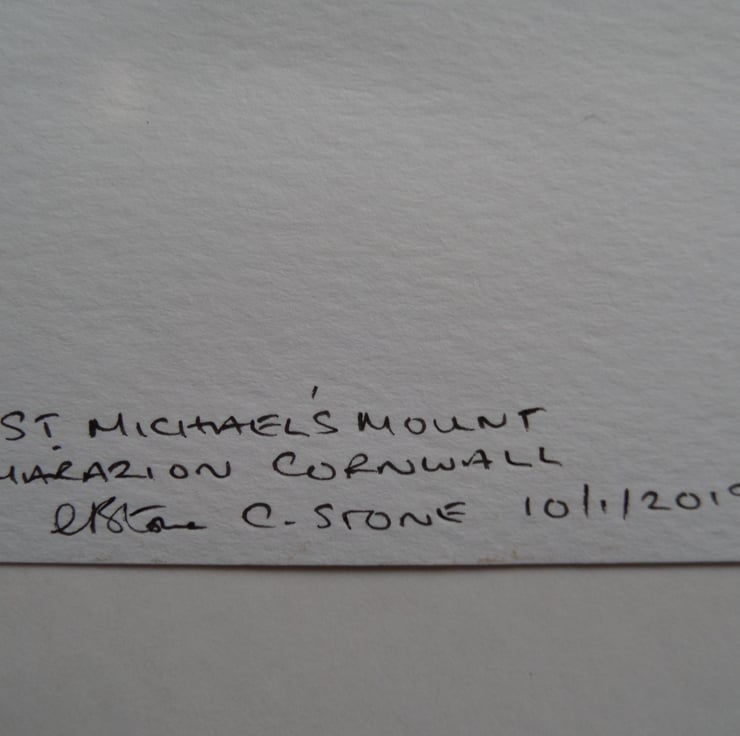 ST. MICHAEL'S MOUNT
MARAZION CORNWALL
C. STONE 10/1/2019